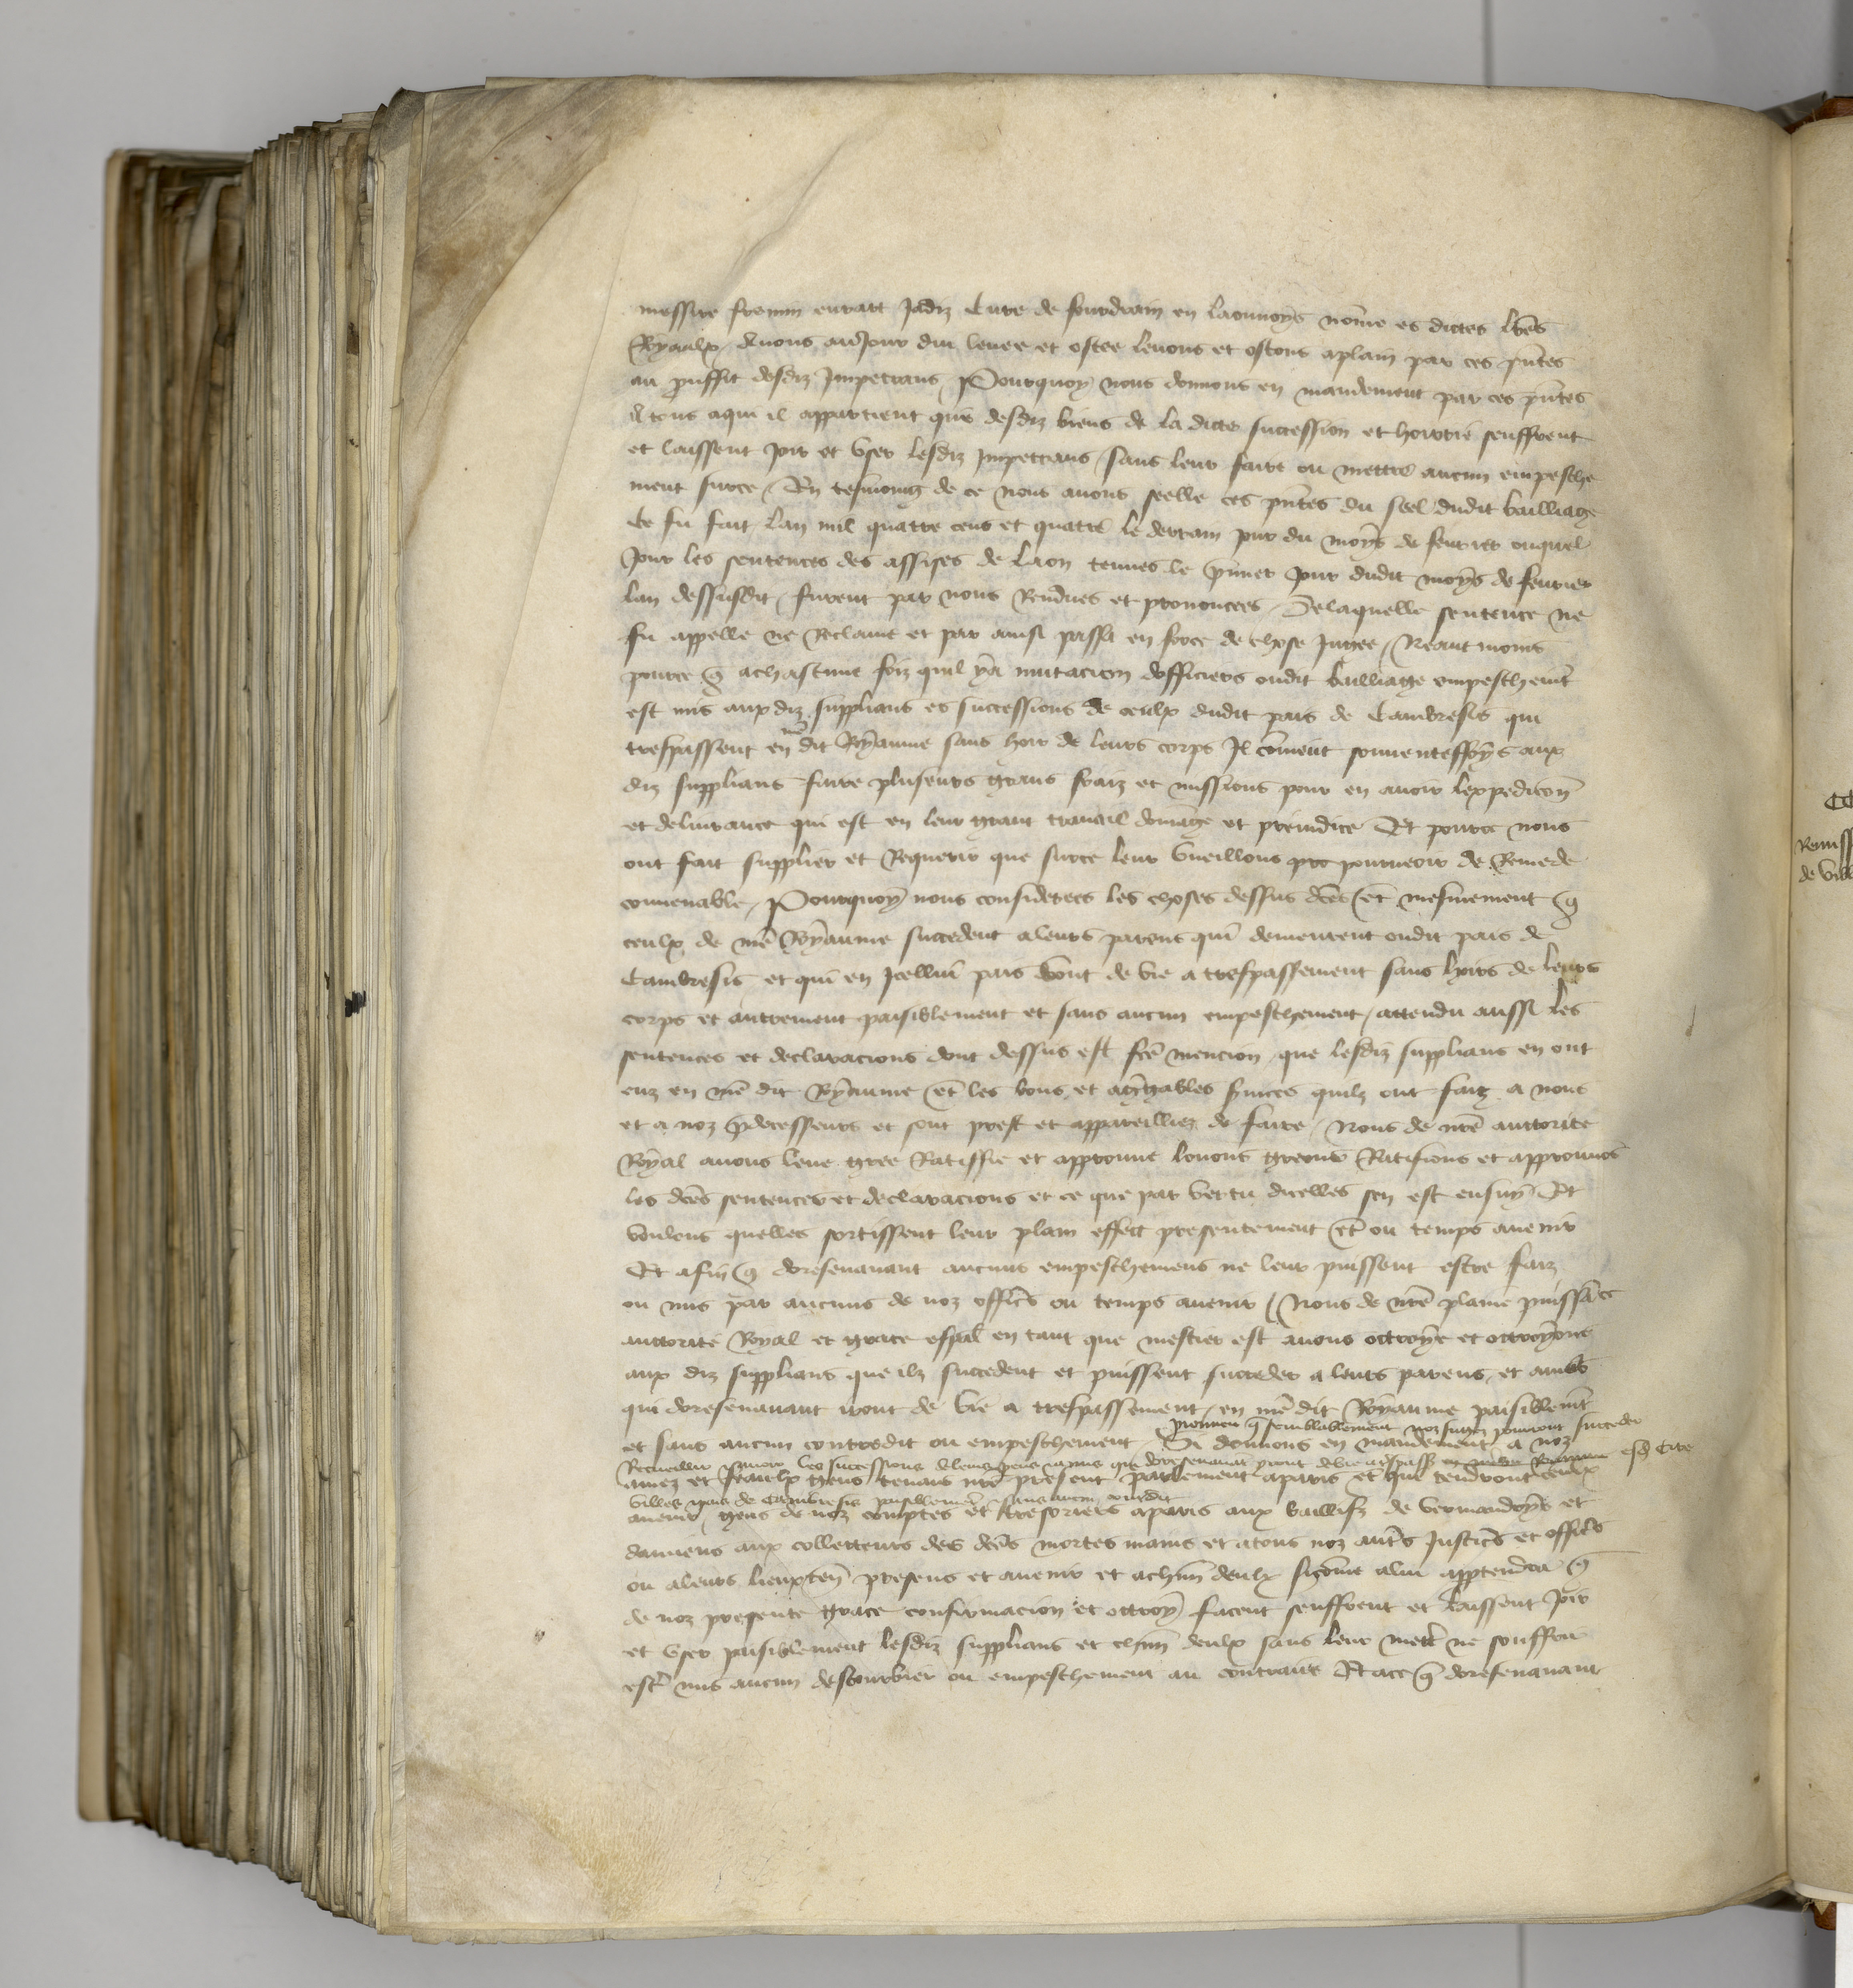 messire fremin evrart jadiz Cure de sourdrain en laonnoys nomme es dictes lres
Royaulx Avons au Jour dui levee et ostee levons et ostons aplain par ces pntes
au prouffit desdiz Impetrans Pourquoy nous donnons en mandement par ces pntes
A tous aqui il appartient que desdiz biens de la dicte succession et hoirrie seuffrent
et laissent joir et user lesdiz Impetrans sans leur faire ou mettre aucun empesche
ment surce En tesmoing de ce nous avons seelle ces pntes du seel dudit bailliage
Ce fu fait lan mil quatre cens et quatre le derrain jour du moys de fevrier ouquel
Jour les sentences des assises de Laon tenues le primer jour dudit moys de fevrier
lan dessusdit furent par nous Rendues et prononcees Delaquelle sentence ne
fu appelle ne Reclame et par ainsi passa en force de chose jugee Neantmoins
pource q achascune foiz quil ya mutacion dofficiers oudit bailliage empeschemt
est mis aux diz supplians es successions de ceulx dudit pais de Cambresis qui
trespassent en nre dit Royaume sans hoir de leurs corps Il convient souventeffoys aux
diz supplians faire pluseurs grans fraiz et missions pour en avoir lexpedicon
et delivrance qui est en leur grant travail domage et preiudice Et pource nous
ont fait supplier et Requerir que surce leur vueillons pro pourveoir de Remede
convenable Pourquoy nous considerees les choses dessus dces et mesmement q
ceulx de nre Royaume succedent aleurs parens qui demeurent oudit pais de
Cambresis et qui en Icellui pais vont de vie a trespassement sans hoirs de leurs
corps et autrement paisiblement et sans aucun empeschement attendu aussi les
sentences et declaracions dont dessus est fce mencion que lesdiz supplians en ont
euz en nre dit Royaume et les bons et agreables services quilz ont faiz a nous
et a noz predecesseurs et sont prest et appareilliez de faire Nous de nre auttorite
Royal avons loue gree Ratiffie et approuve louons greons Ratifions et approuvons
les dces sentences et declaracions et ce que par vertu dicelles sen est ensuy Et
voulons quelles sortissent leur plain effect presentement et ou temps avenir
Et afin q doresenavant aucuns empeschemens ne leur puissent estre faiz
ou mis par aucuns de noz offics ou temps avenir Nous de nre plaine puissance
auttorite Royal et grace espal en tant que mestier est avons ottroye et ottroyons
aux diz supplians que ilz succedent et puissent succeder a leurs parens et amis
qui doresenavant iront de vie a trespassement en nre dit Royaume paisiblemt
pourveu q semblablement noz subgez pourront succeder
et sans aucun contredit ou empeschement Si donnons en mandement a noz
Recueillir et avoir les successions de leurs parens et amis qui doresenavant yront de vie a trespass en nostre Royaume esd Cite
amez et feaulx gens tenans nre present parlement aparis et qui tendront ceulx
villes pais de Cambresis paisiblement sans aucun contredit
avenir gens de noz comptes et tresoriers aparis aux baillifz de vermandoys et
damiens aux collecteurs des dces mortes mains et atous noz autres Justics et offics
ou aleurs lieuxten presens et avenir et achun deulx sicomme alui appartendra q
de noz presente grace confirmacion et ottroy facent seuffrent et laissent joir
et user paisiblement lesdiz supplians et chun deulx sans leur mettre ne souffrir
estre mis aucun destourbier ou empeschement au contraire Et ace q doresenavant